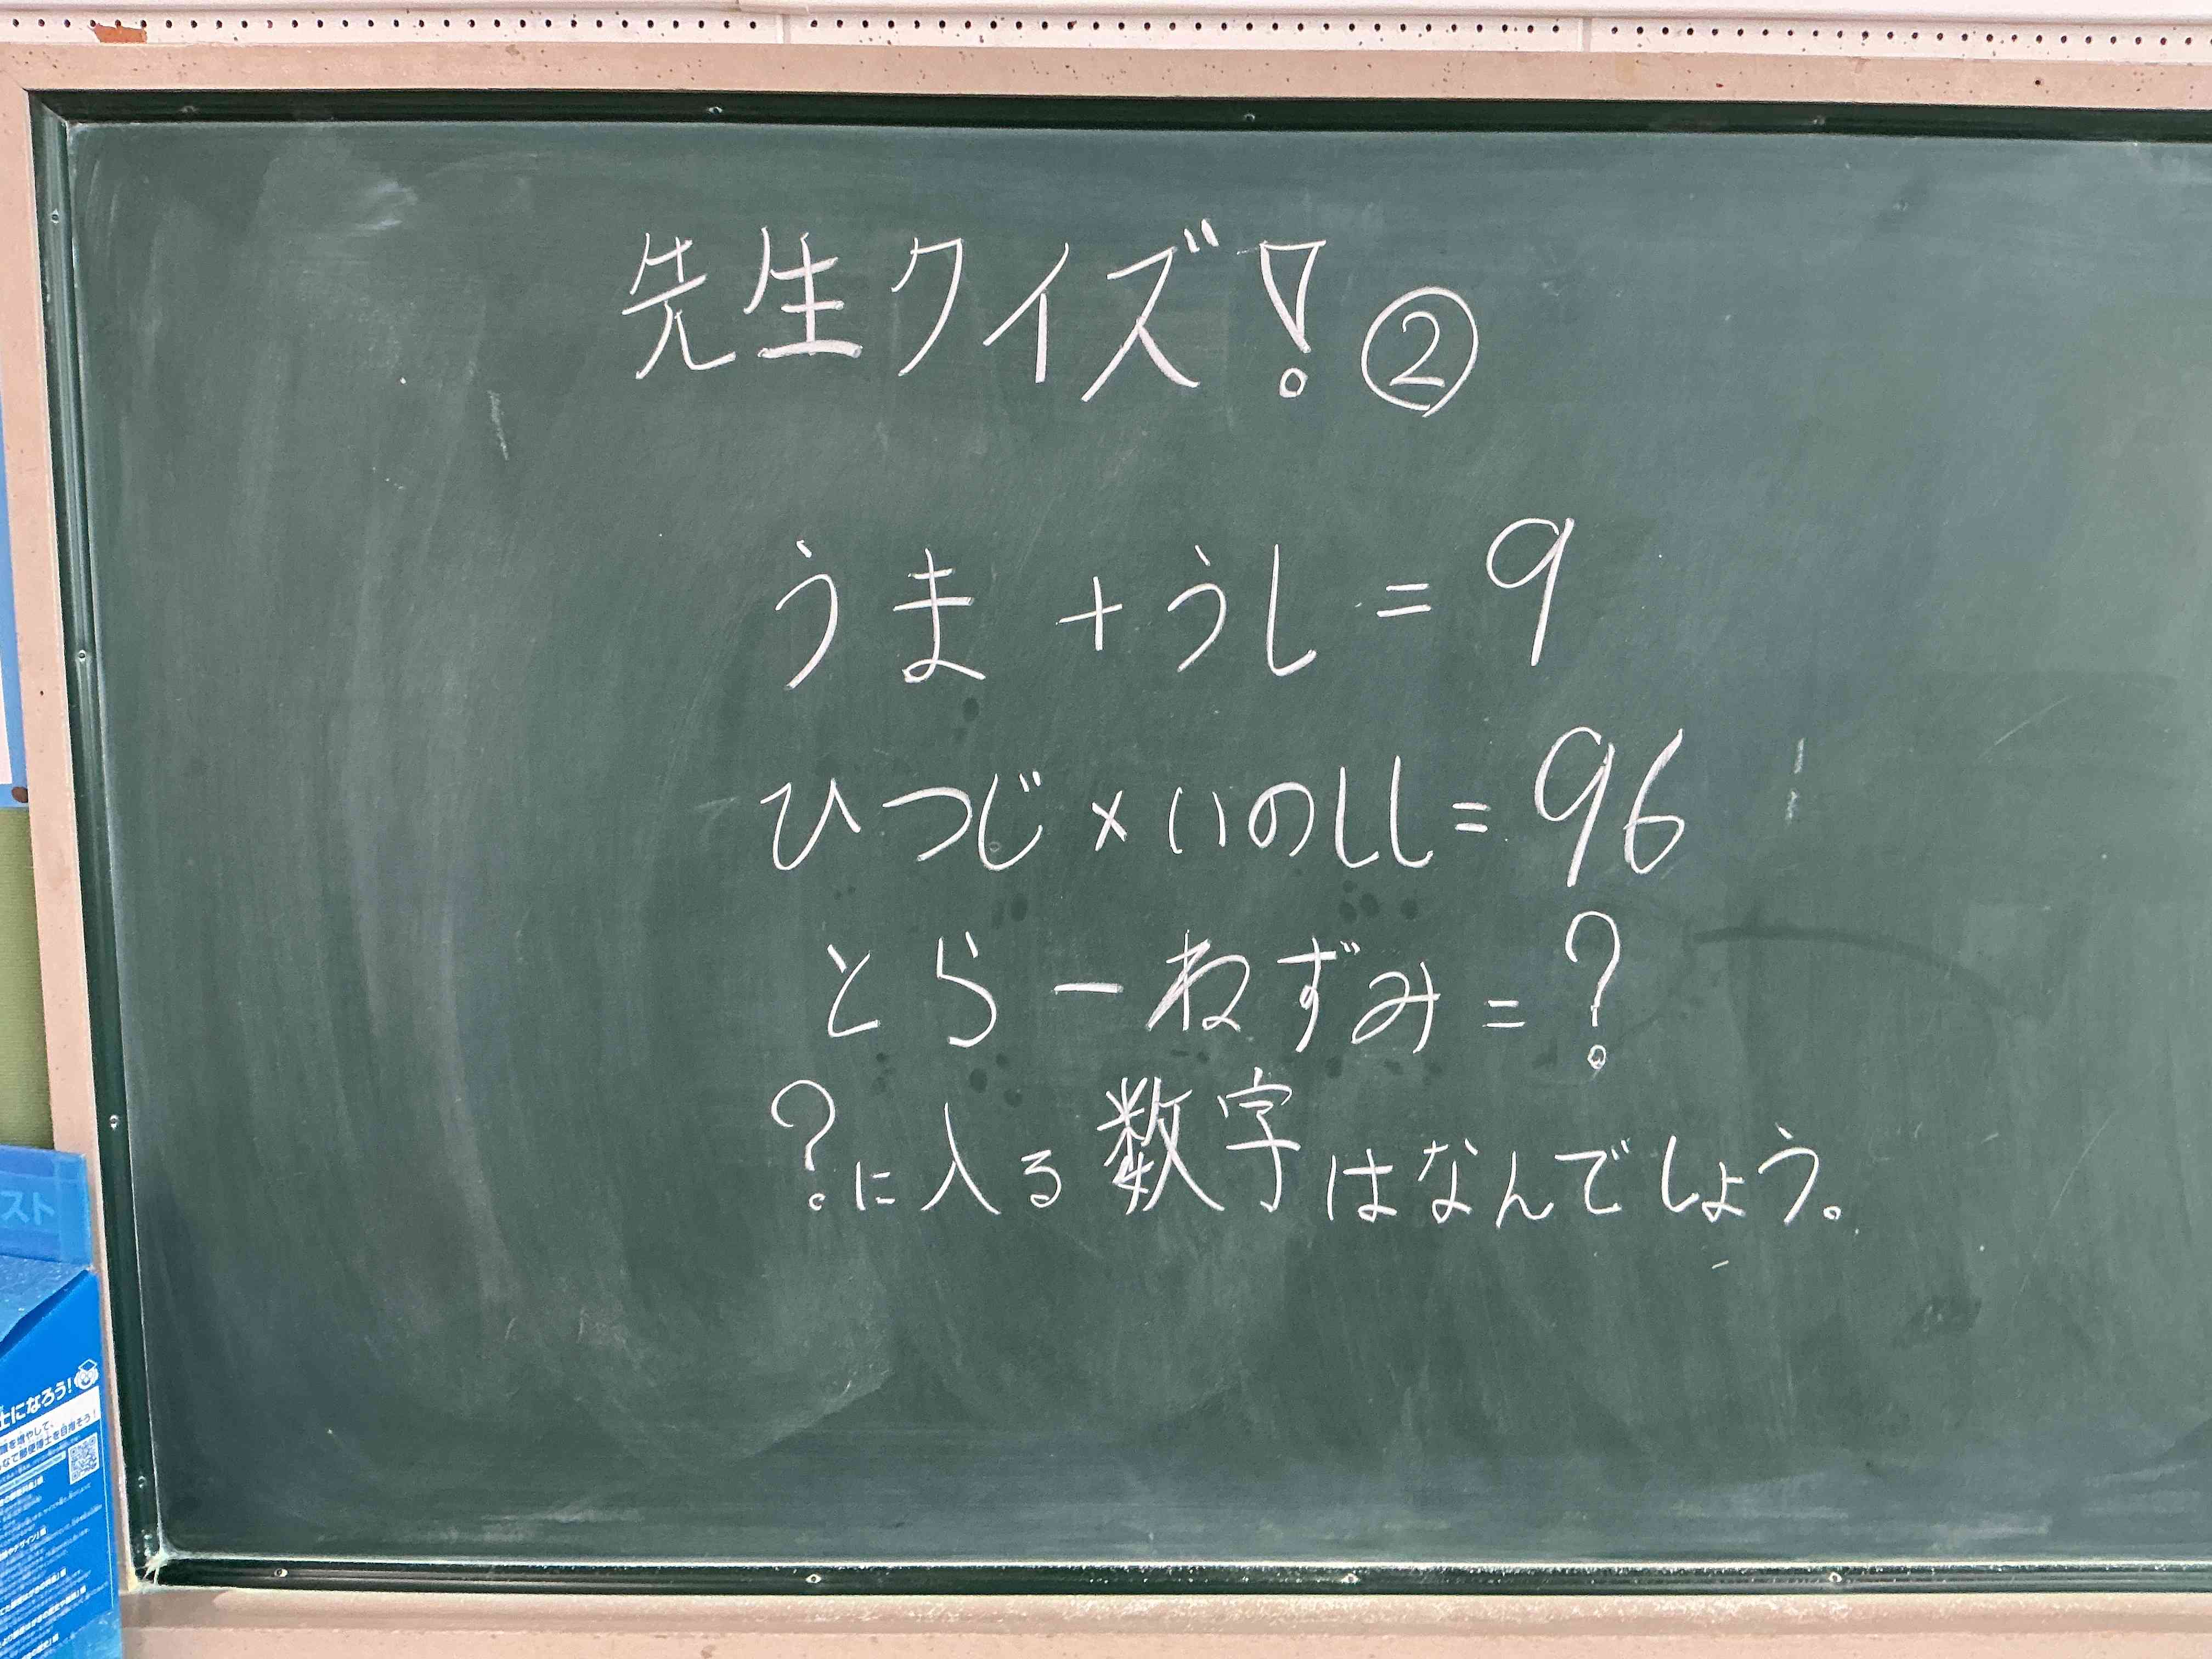 先生クイズ! ②
うま + うし = 9
ひつじ × いのしし = 96
とら - ねずみ = ?
?に入る数字はなんでしょう。
スト
士になろう!